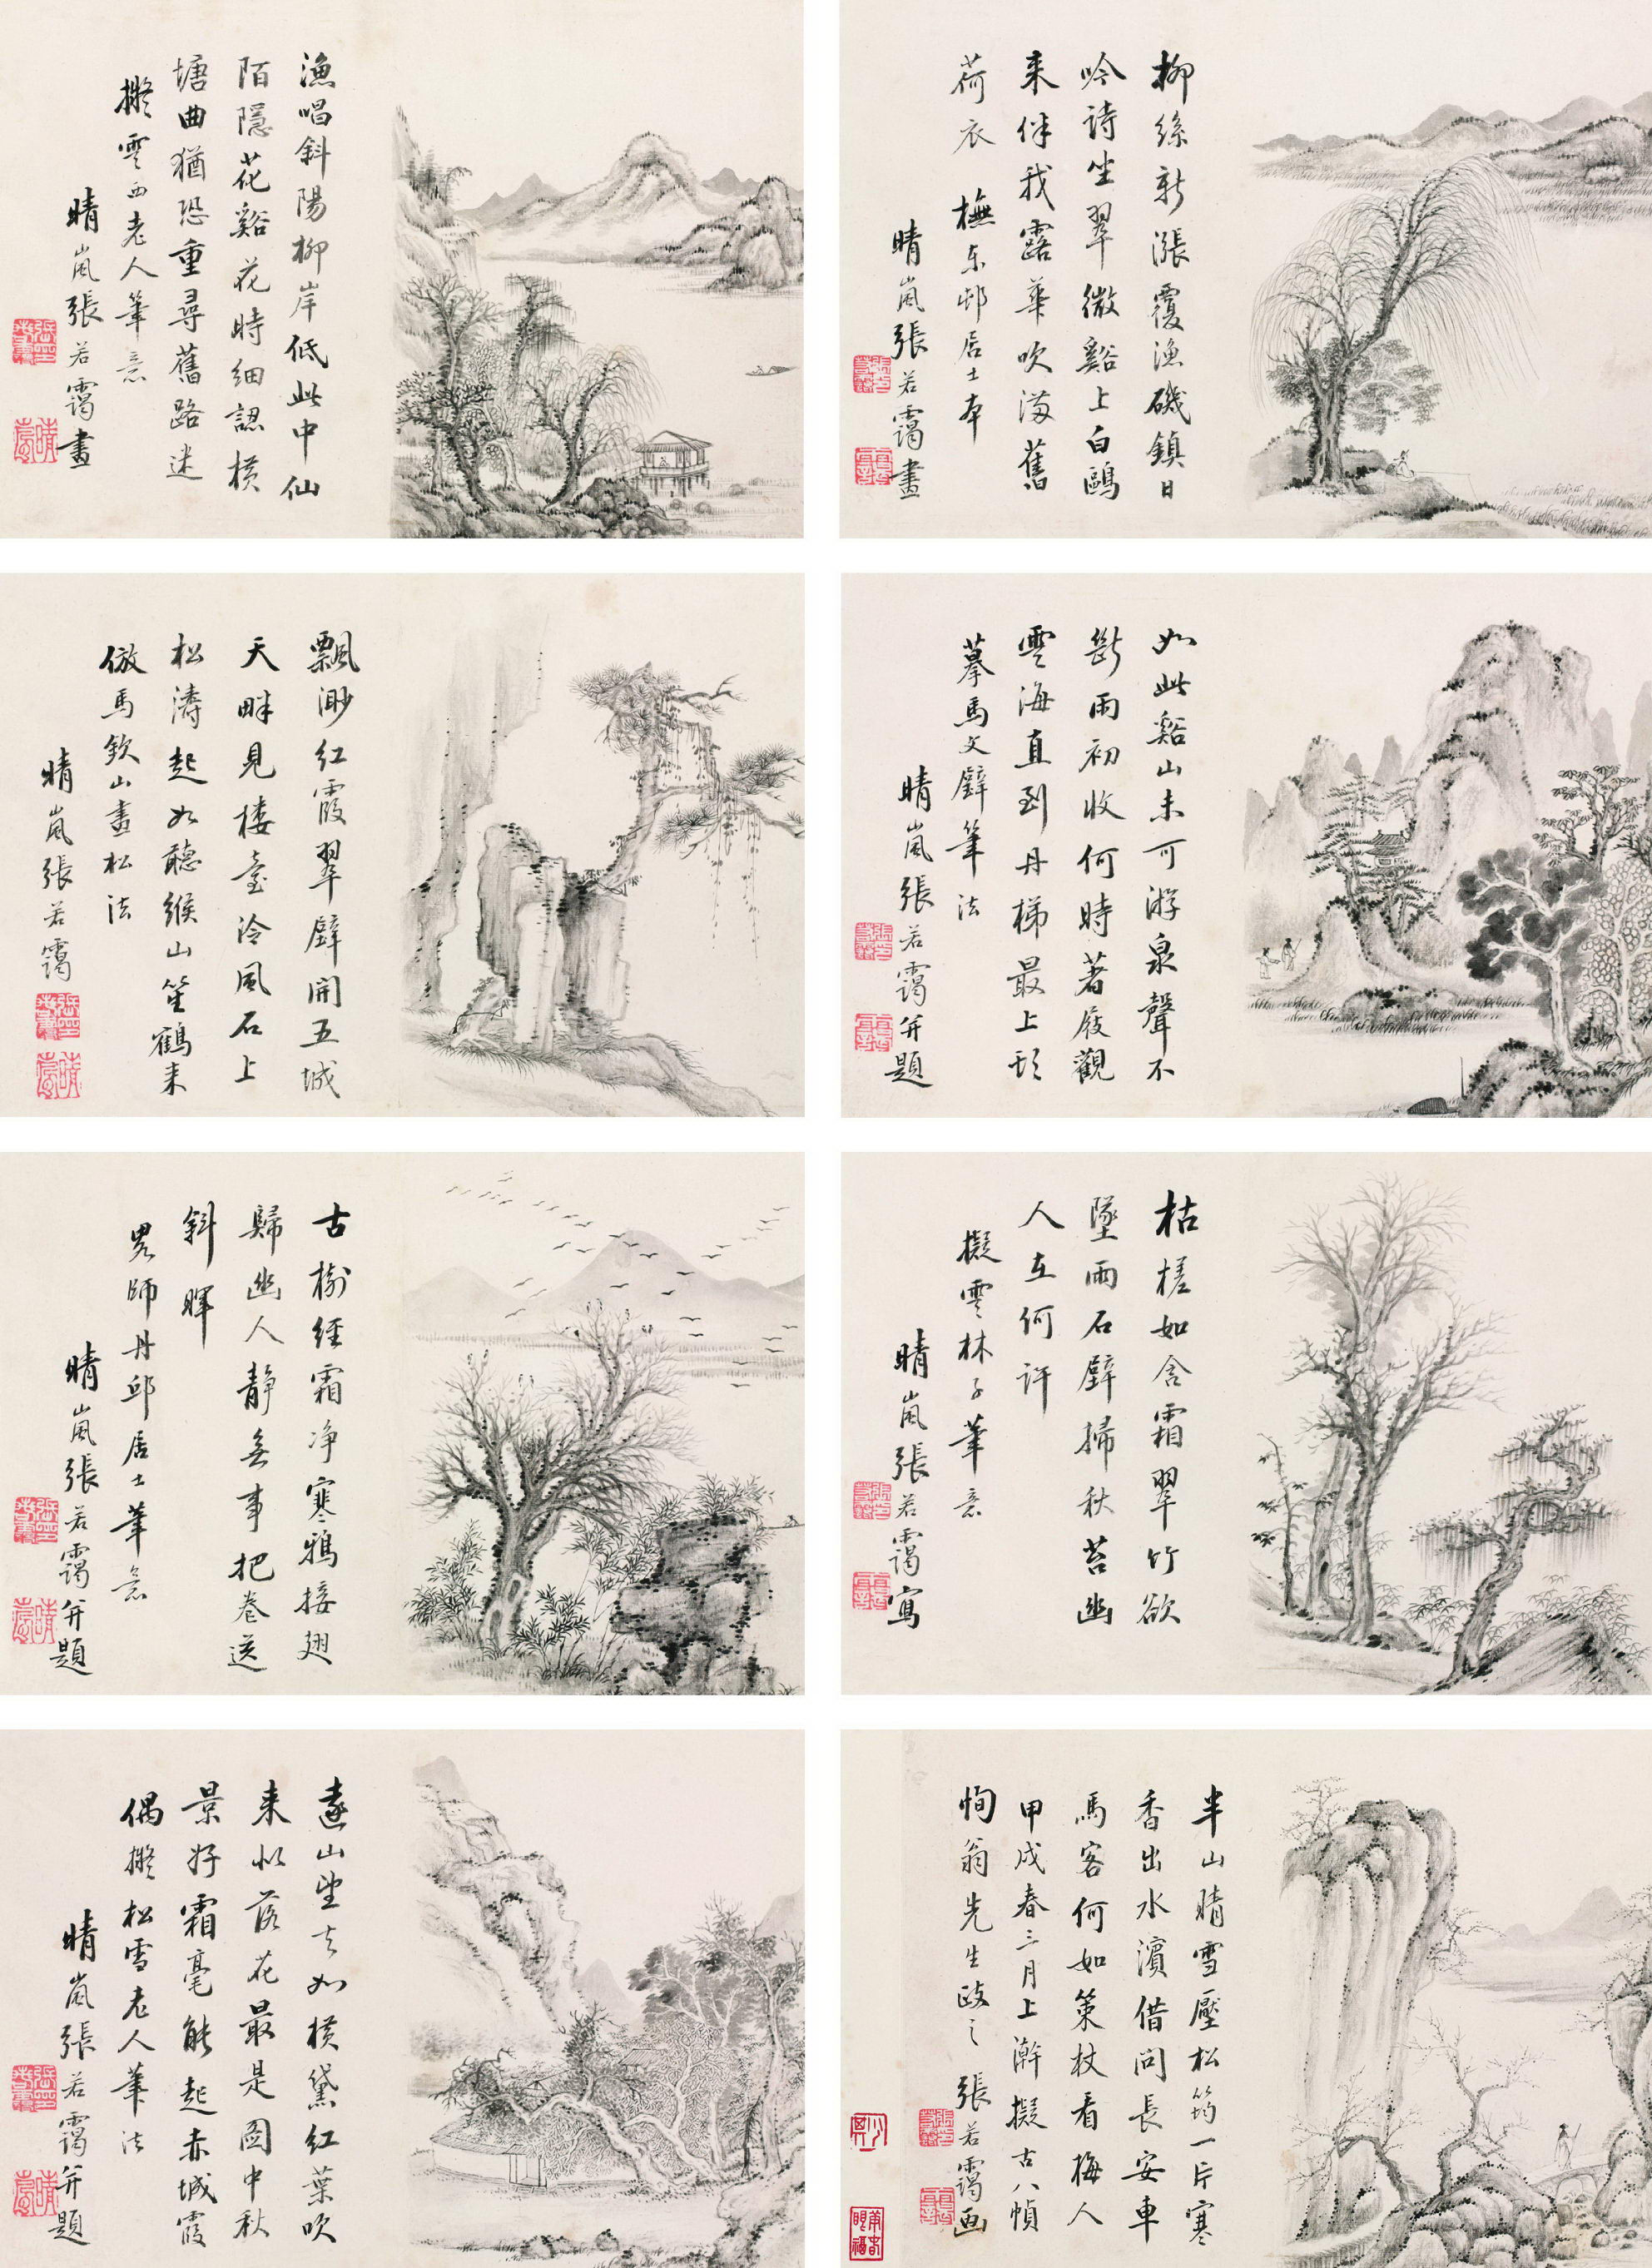 柳絲新漲覆漁磯鎮日
吟詩坐翠微谿上白鷗
来伴我露華吹滿舊
荷衣
橅東邨居士本
晴嵐張若靄畫
漁唱斜陽柳岸低此中仙
陌隱花谿花時細認橫
塘曲猶恐重尋舊路迷
擬雲西老人筆意
晴嵐張若靄畫
如此谿山未可游泉聲不
斷雨初收何時著屐觀
雲海直到丹梯最上頭
摹馬文璧筆法
晴嵐張若靄并題
飄渺紅霞翠壁開五城
天畔見樓臺泠風石上
松濤起如聽緱山笙鶴来
倣馬欽山畫松法
晴嵐張若靄
枯槎如含霜翠竹欲
墜雨石壁掃秋苔幽
人立何許
擬雲林子筆意
晴嵐張若靄寫
古樹經霜净寒鴉接翅
歸幽人静無事把卷送
斜暉
畧師丹邱居士筆意
晴嵐張若靄并題
半山晴雪壓松筠一片寒
香出水濱借問長安車
馬客何如策杖看梅人
甲戌春三月上澣擬古八幀
恂翁先生政之 張若靄画
遠山望去如橫黛紅葉吹
来似落花最是圖中秋
景好霜毫能起赤城霞
偶擬松雪老人筆法
晴嵐張若靄并題